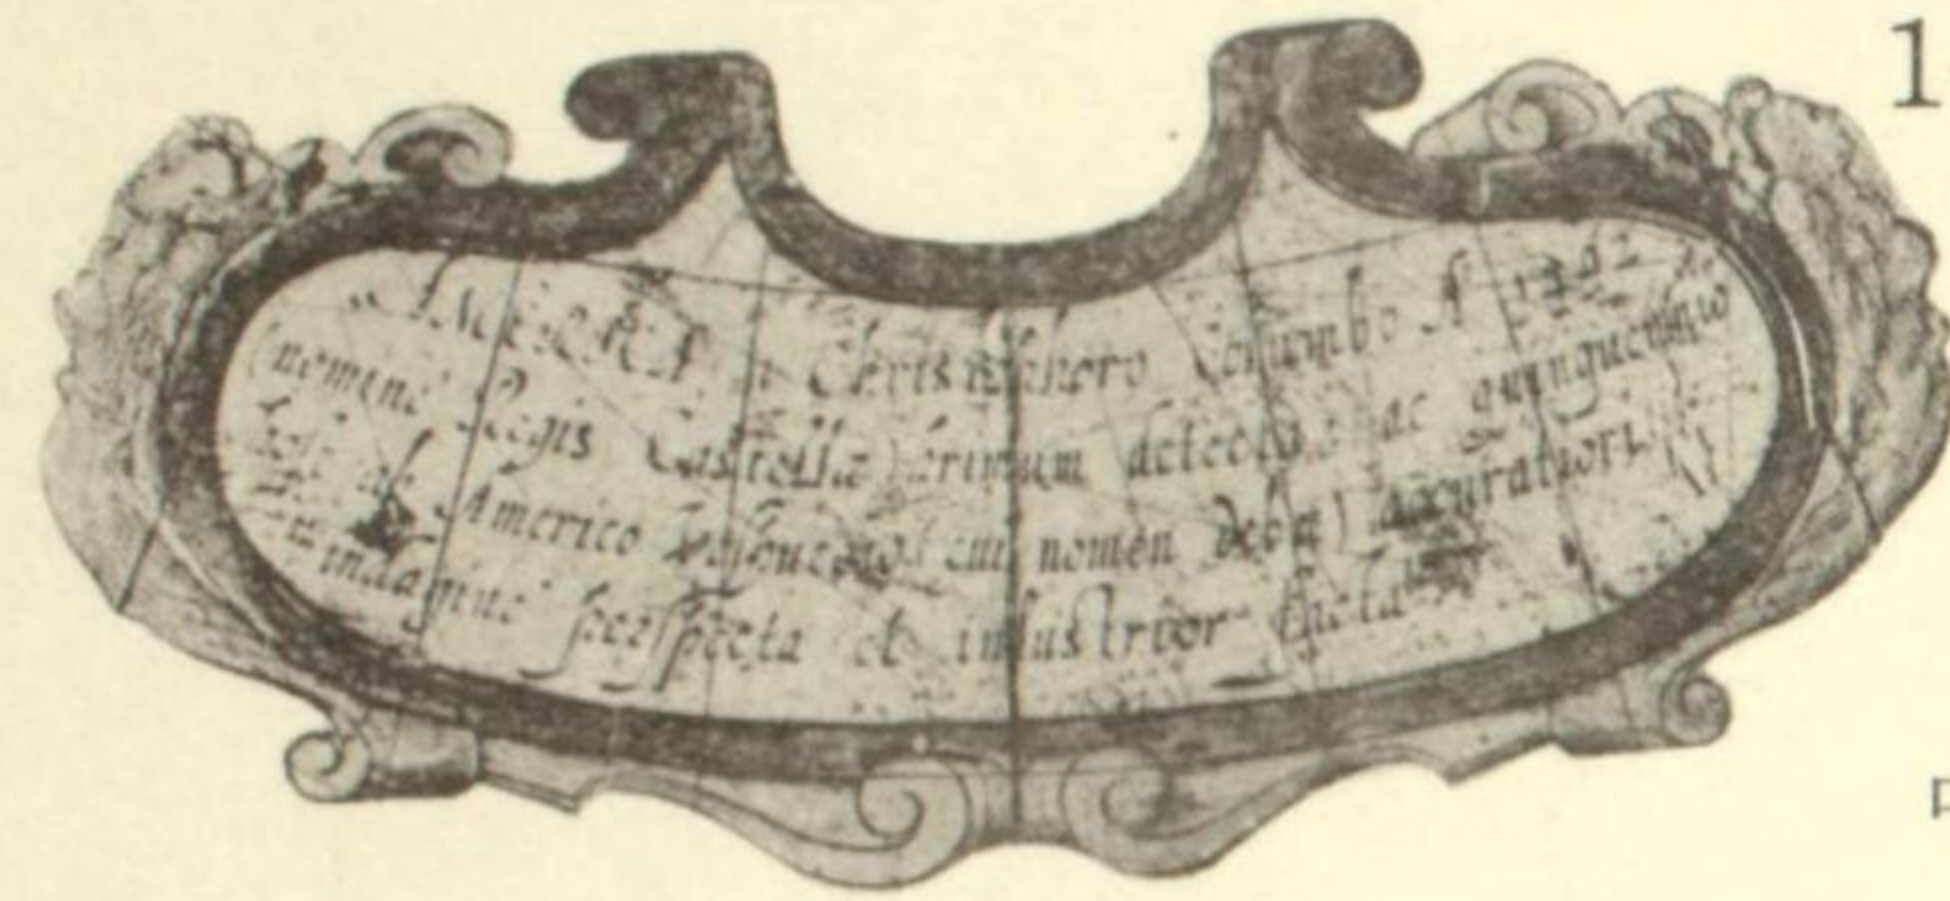 AMERICA a Christophero Columbo Aº 1492
nomine Regis Castellæ primum detecta, ac quinquennio
ab Americo cui nomen debet) accuratiori
indagine perspecta et industrior facta
1